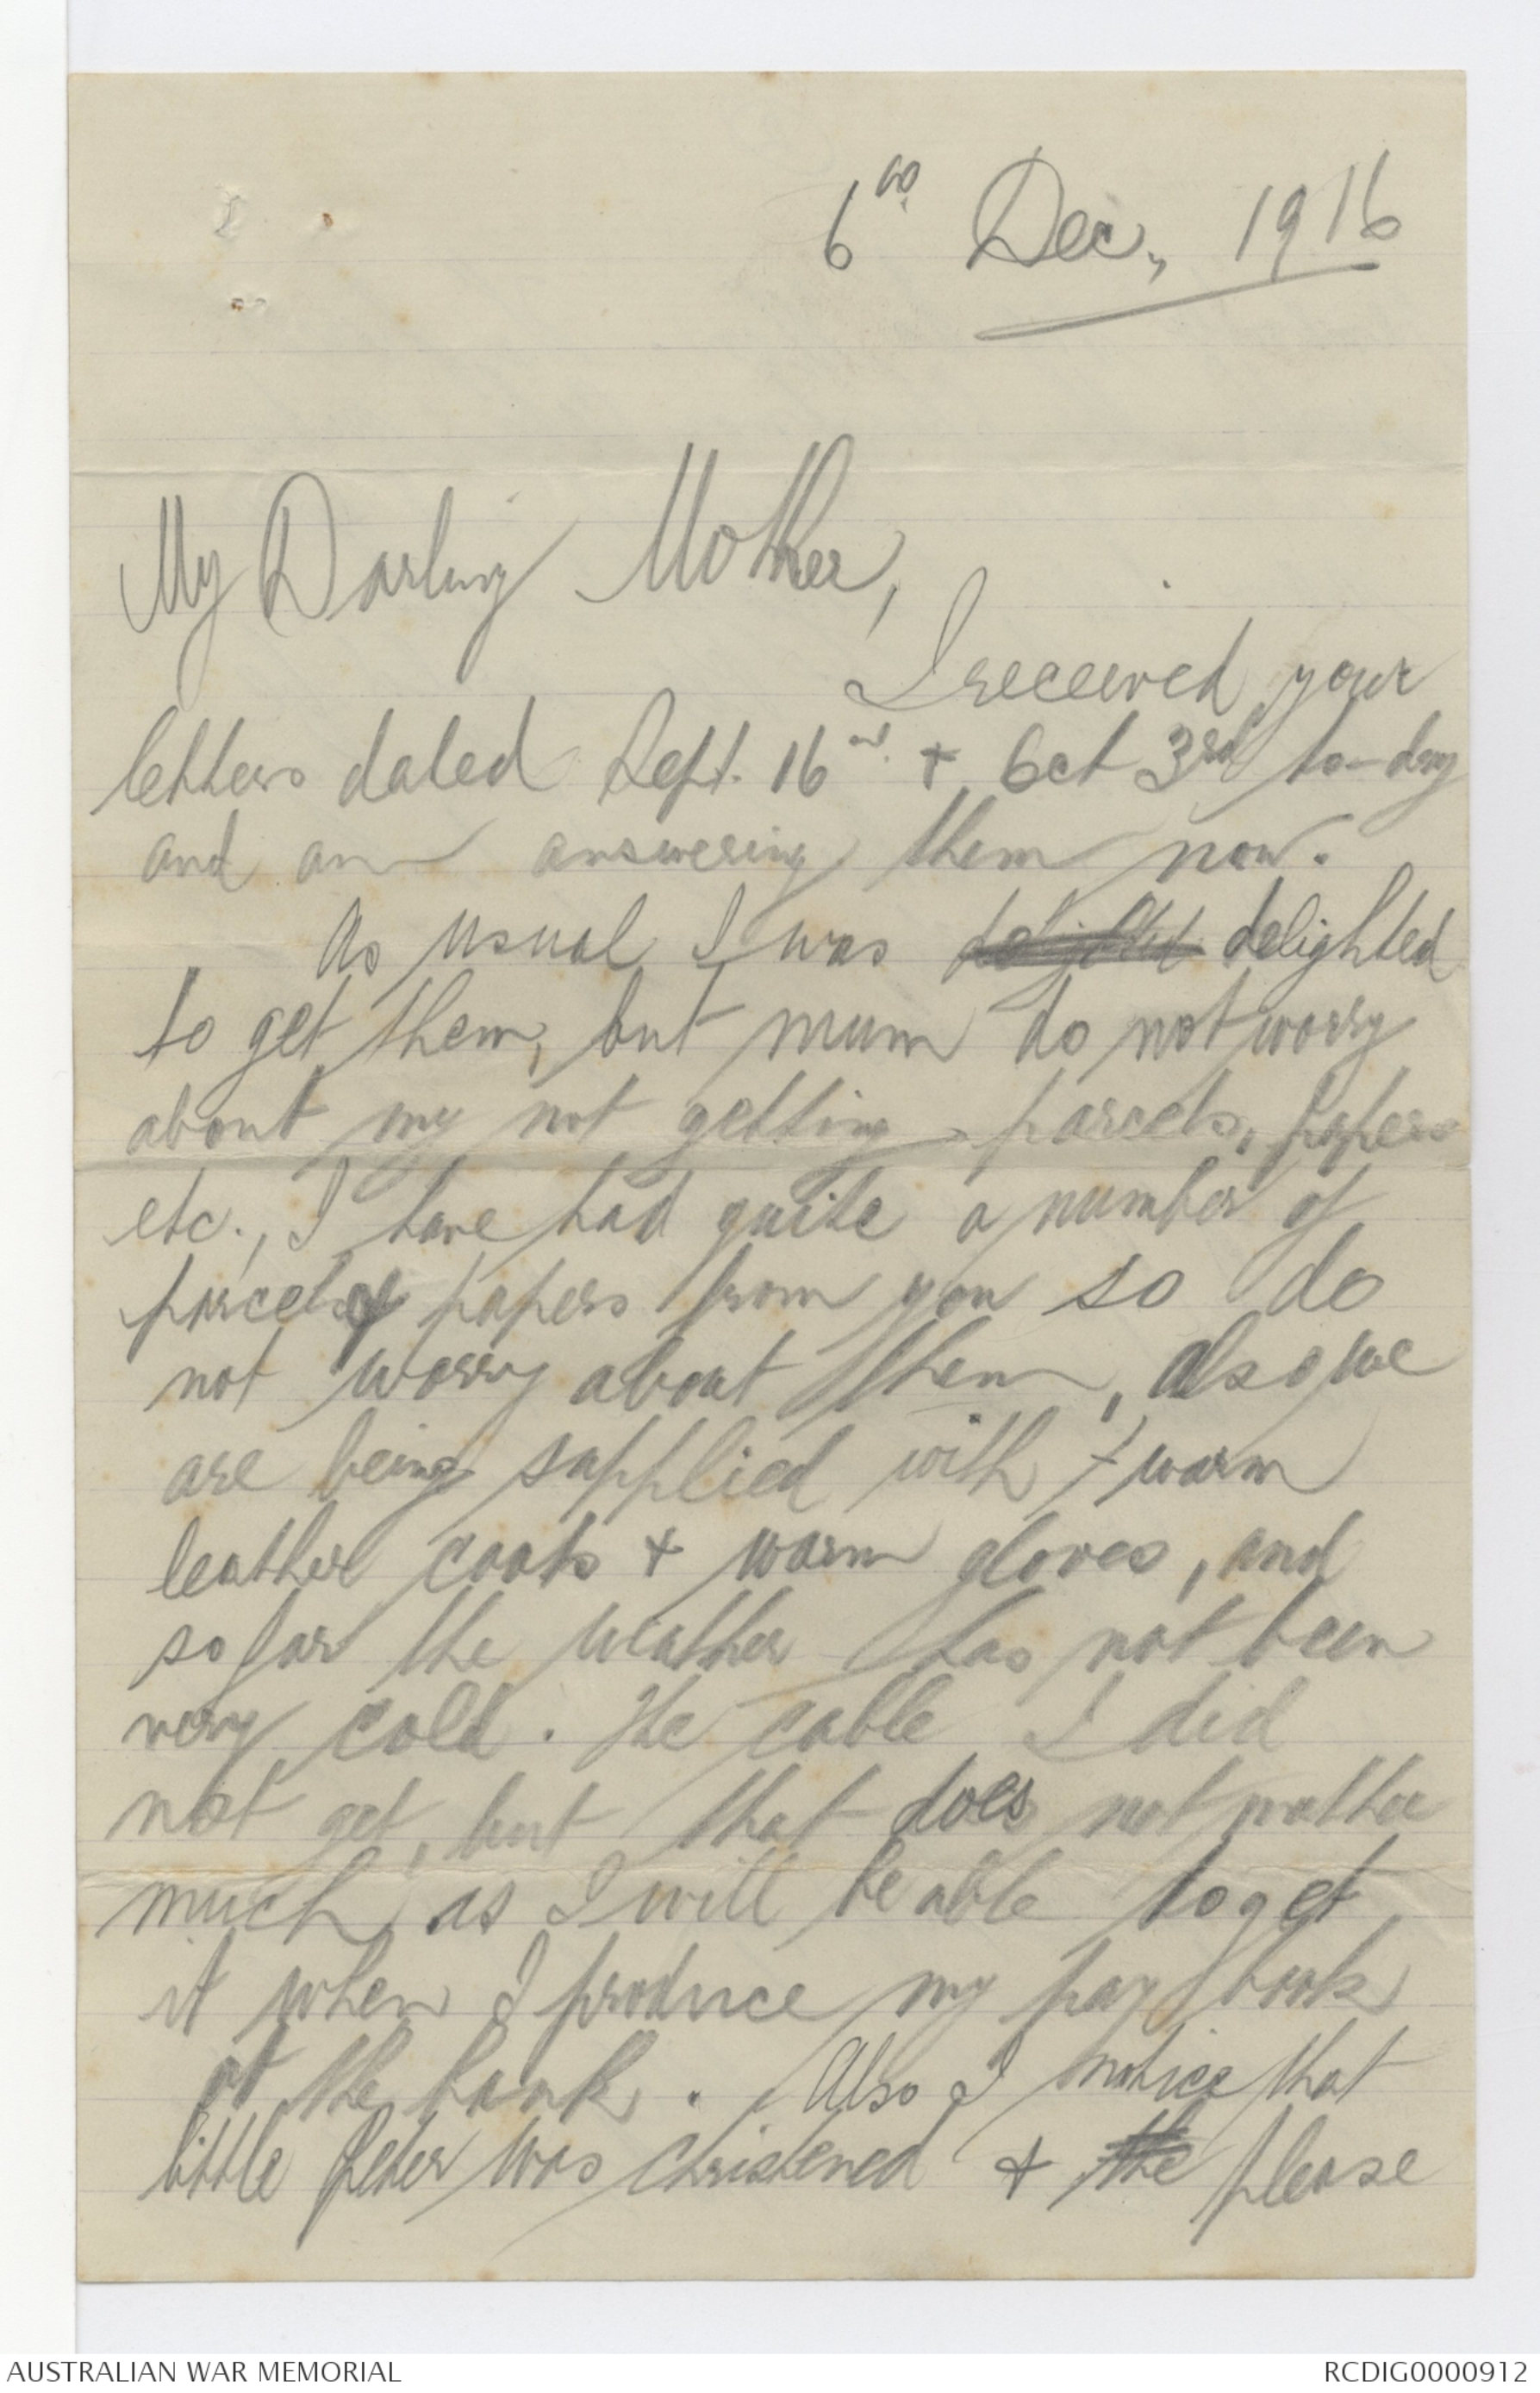 6th Dec., 1916
My Darling Mother,
I received your
letters dated Sept. 16th + Oct 3rd to-day
and am answering them now.
As usual I was delighted delighted
to get them, but mum do not worry
about my not getting parcels, papers
etc., I have had quite a number of
parcels & papers from you so do
not worry about them, also we
are being supplied with + warm
leather coats + warm gloves, and
so far the weather has not been
very cold. The cable I did
not get, but that does not matter
much, as I will be able to get
it when I produce my pay book
at the bank. Also I notice that
little Peter was christened + the please
AUSTRALIAN WAR MEMORIAL
RCDIG0000912